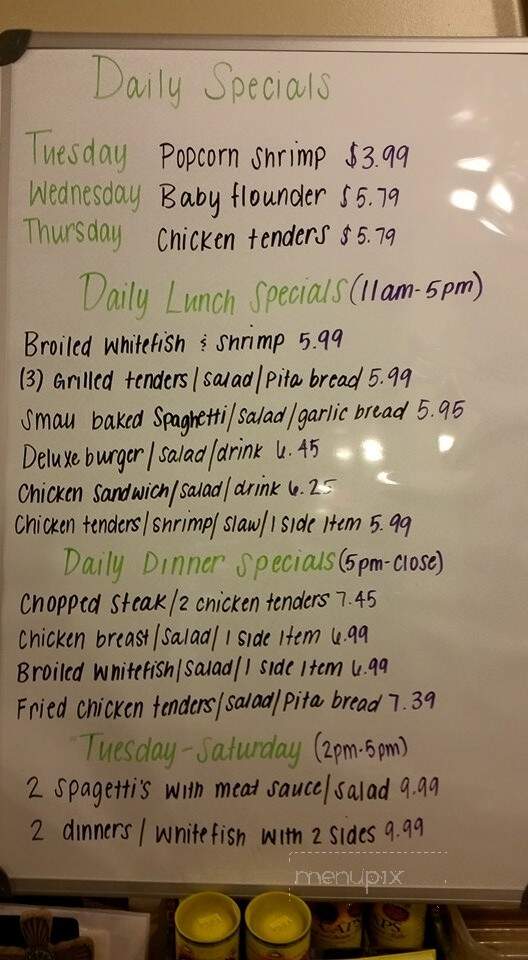 Daily Specials
Tuesday Popcorn shrimp $3.99
Wednesday Baby flounder $5.79
Thursday Chicken tenders $5.79
Daily Lunch Specials (11am-5pm)
Broiled Whitefish & shrimp 5.99
(3) Grilled tenders/salad/pita bread 5.99
Small baked Spaghetti/salad/garlic bread 5.95
Deluxe burger/salad/drink 6.45
Chicken Sandwich/salad/drink 6.25
Chicken tenders/shrimp/slaw/1 side item 5.99
Daily Dinner Specials (5pm-close)
Chopped Steak/2 chicken tenders 7.45
Chicken breast/salad/1 side item 6.99
Broiled Whitefish/salad/1 side item 6.99
Fried Chicken tenders/salad/pita bread 7.39
Tuesday-Saturday (2pm-5pm)
2 Spagetti's with meat sauce/salad 9.99
2 dinners/Whitefish with 2 sides 9.99
menupix